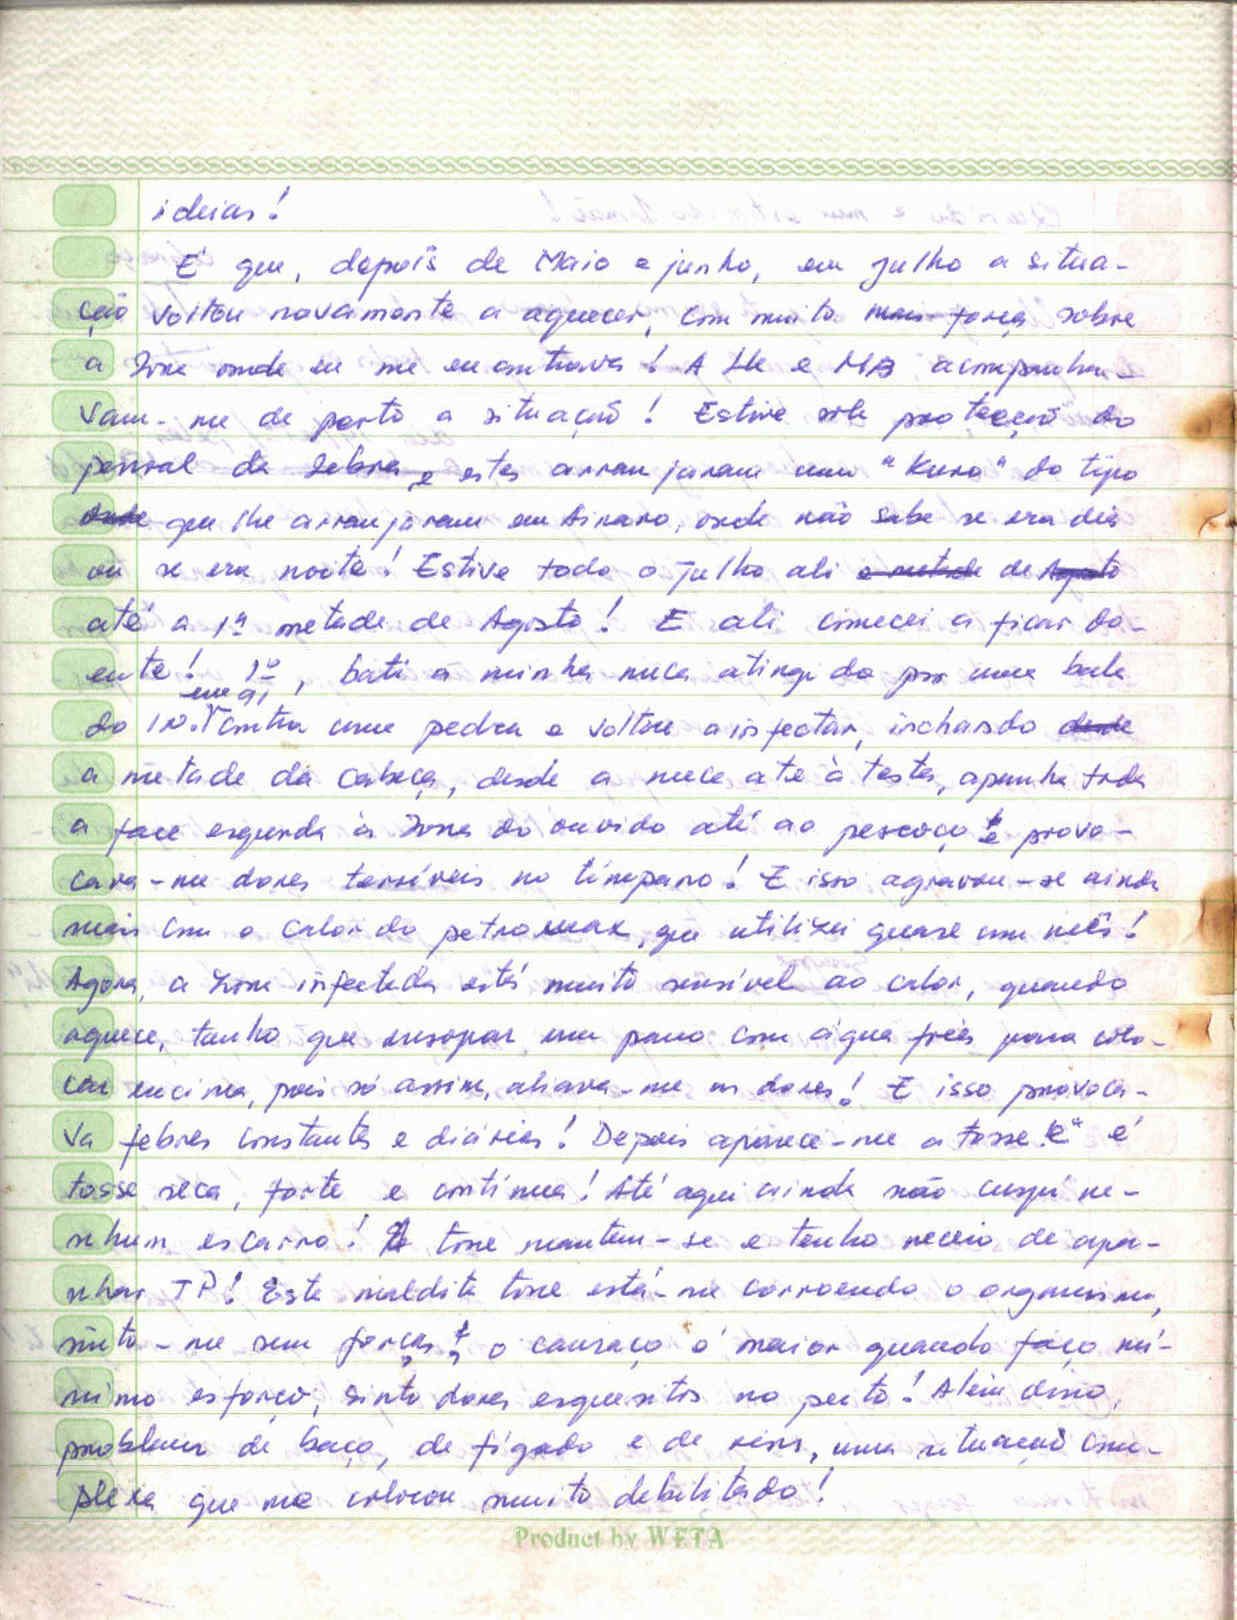 ideias!
É que, depois de Maio e junho, em julho a situa-
ção voltou novamente a aquecer, com muita mais força sobre
a zona onde eu me encontrava! A He e MB acompanha-
vam-me de perto a situação! Estive sob protecção do
pessoal da Sebra e estes arranjaram um "Kuro" do tipo
onde que lhe arranjaram em Ainaro, onde não sabe se era dia
ou se era noite! Estive todo o julho ali e metade de Agosto
até a 1ª metade de Agosto! E ali comecei a ficar do-
ente! 1º, bati a minha nuca atingida por uma bala
do IN. em 91 contra uma pedra e voltou a infectar, inchando desde
a metade da cabeça, desde a nuca até à testa, apanha toda
a face esquerda à zona do ouvido até ao pescoço e provo-
cava-me dores terríveis no tímpano! E isso agravou-se ainda
mais com o calor do petromax, que utilizei quase um mês!
Agora, a zona infectada está muito sensível ao calor, quando
aquece, tenho que ensopar um pano com água fria para colo-
car em cima, pois só assim, aliava-me as dores! E isso provoca-
va febres constantes e diárias! Depois aparece-me a tosse "e" é
tosse seca, forte e contínua! Até aqui ainda não cuspi ne-
nhum escarro! A tosse mantem-se e tenho receio de apa-
nhar TP! Esta maldita tosse está-me corroendo o organismo,
sinto-me sem forças, o cansaço é maior quando faço mí-
nimo esforço, sinto dores esquesitas no peito! Além disso,
problemas de baço, de fígado e de rins, uma situação com-
plexa que me colocou muito debilitado!
Product by WETA